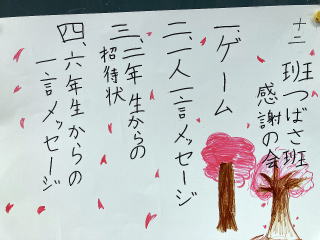 十二班つばさ班
感謝の会
一、ゲーム
二、一人一言メッセージ
三、二年生からの
招待状
四、六年生からの
一言メッセージ